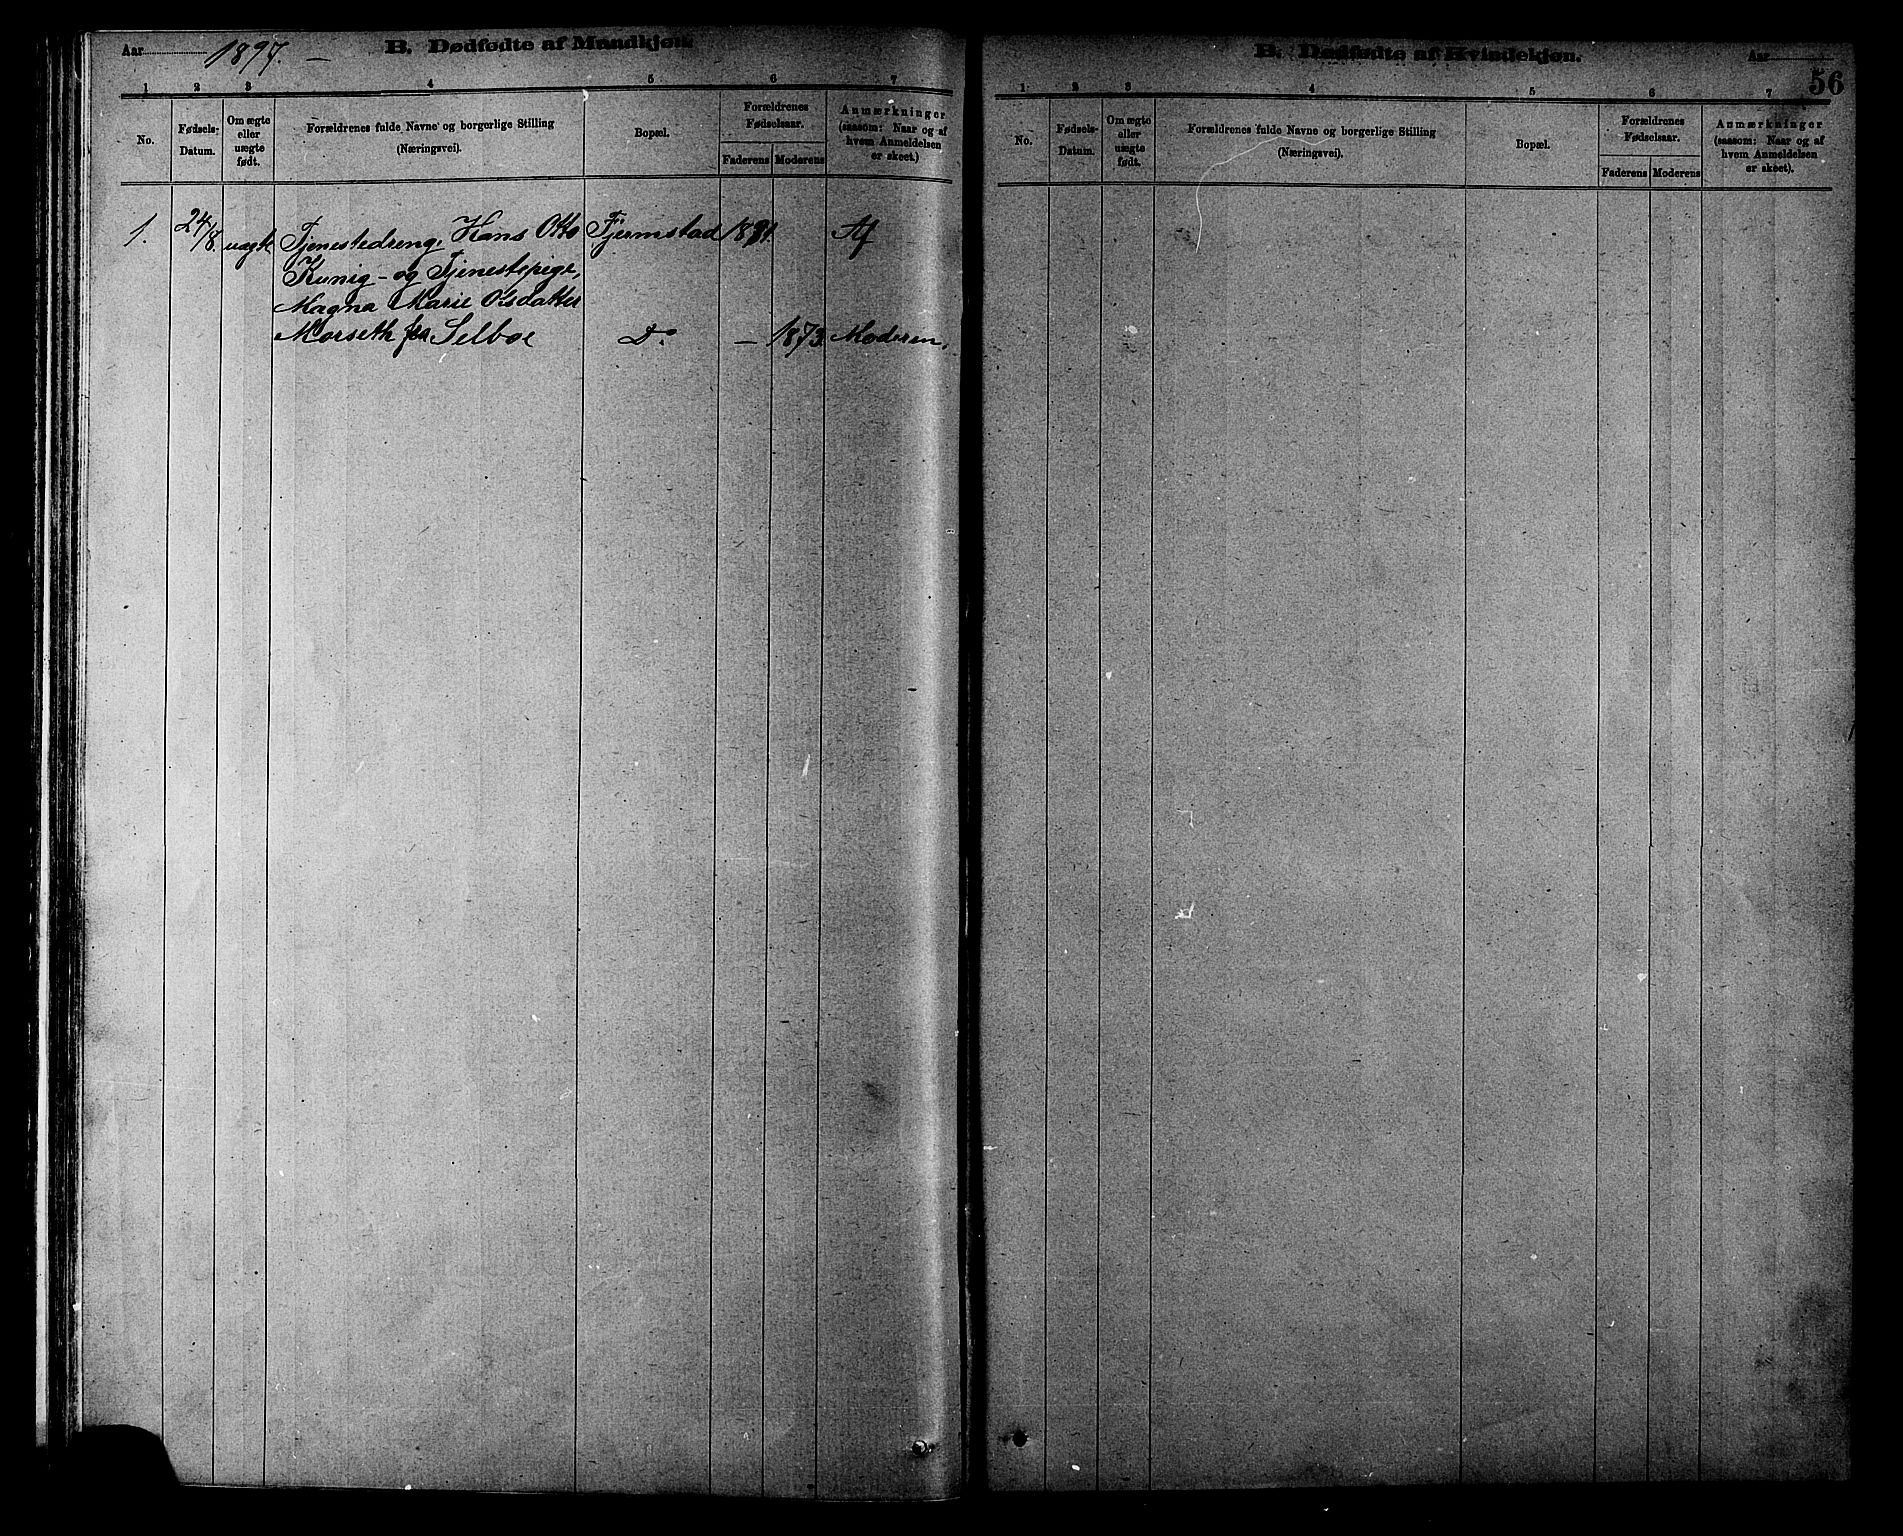 Aar 1897. – B. Dødfødte af Mandkjøn.
1 2 3 4 5 6 7
No.
Fødsels-
Datum.
Om ægte
eller
uægte
født.
Forældrenes fulde Navne og borgerlige Stilling
(Næringsvei).
Bopæl.
Forældrenes
Fødselsaar.
Faderens Moderens
Anmærkninger
(saasom: Naar og af
hvem Anmeldelsen
er skeet.)
1. 24/8. uægte Tjenestedreng, Hans Otto Fjermstad Af
Kunig - og Tjenestepige,
Magna Marie Olsdatter
Morseth fra Selboe D. – 1873. Moderen.
B. Dødfødte af Kvindekjøn. Aar
56
1 2 3 4 5 6 7
No.
Fødsels-
Datum.
Om ægte
eller
uægte
født.
Forældrenes fulde Navne og borgerlige Stilling
(Næringsvei).
Bopæl.
Forældrenes
Fødselsaar.
Faderens Moderens
Anmærkninger
(saasom: Naar og af
hvem Anmeldelsen
er skeet).